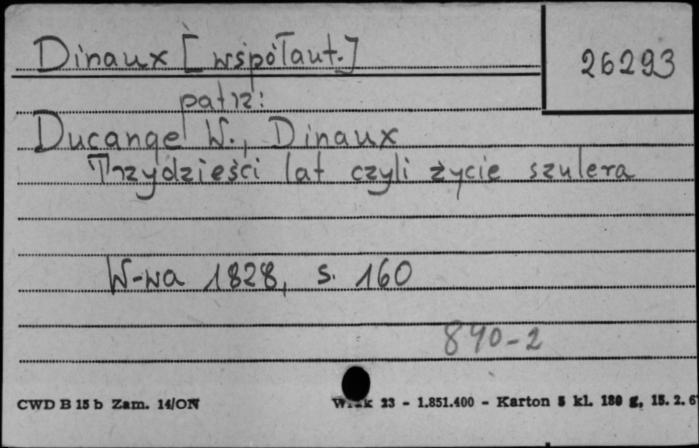 Dinaux [współaut.]
26293
patrz:
Ducange W., Dinaux
Trzydzieści lat czyli życie szulera
W-wa 1828, s. 160
840-2
CWD B 15 b Zam. 14/ON
23 - 1.851.400 - Karton 5 kl. 180 g, 15. 2. 6